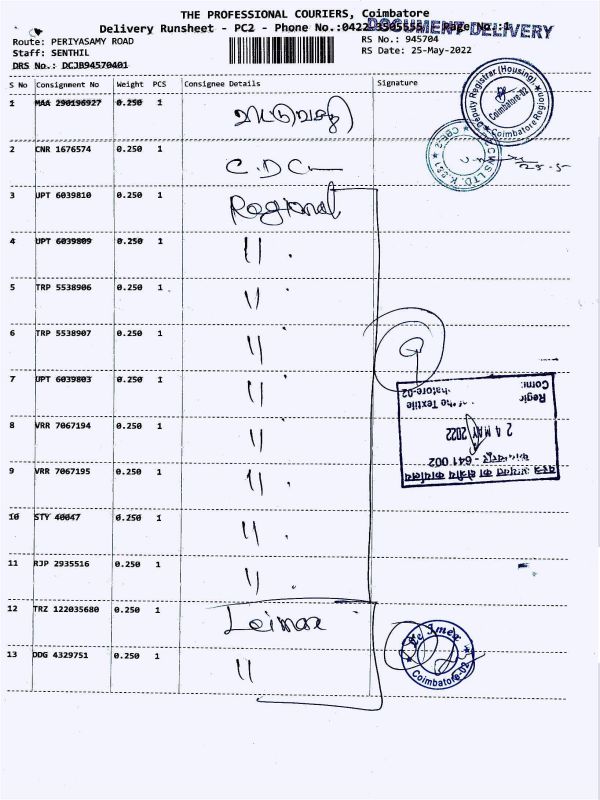 THE PROFESSIONAL COURIERS, Coimbatore
Delivery Runsheet - PC2 - Phone No.:0422 Page No.:1
DOCUMENT DELIVERY
Route: PERIYASAMY ROAD
RS No.: 945704
Staff: SENTHIL
RS Date: 25-May-2022
DRS No.: DCJB94570401
S No Consignment No Weight PCS Consignee Details Signature
1 MAA 290196927 0.250 1
2 CNR 1676574 0.250 1 C.D.C
3 UPT 6039810 0.250 1 Regional
4 UPT 6039809 0.250 1 "
5 TRP 5538906 0.250 1 "
6 TRP 5538907 0.250 1 "
7 UPT 6039803 0.250 1 "
8 VRR 7067194 0.250 1 "
9 VRR 7067195 0.250 1 "
10 STY 40047 0.250 1 "
11 RJP 2935516 0.250 1 "
12 TRZ 122035680 0.250 1
13 DDG 4329751 0.250 1 "
Deputy Registrar (Housing)
Coimbatore-02
Coimbatore Region
CMS LTD.
25-5
वस्त्र आयुक्त का क्षेत्रीय कार्यालय
641 002
24 MAY 2022
of the Textile
Coimbatore-02